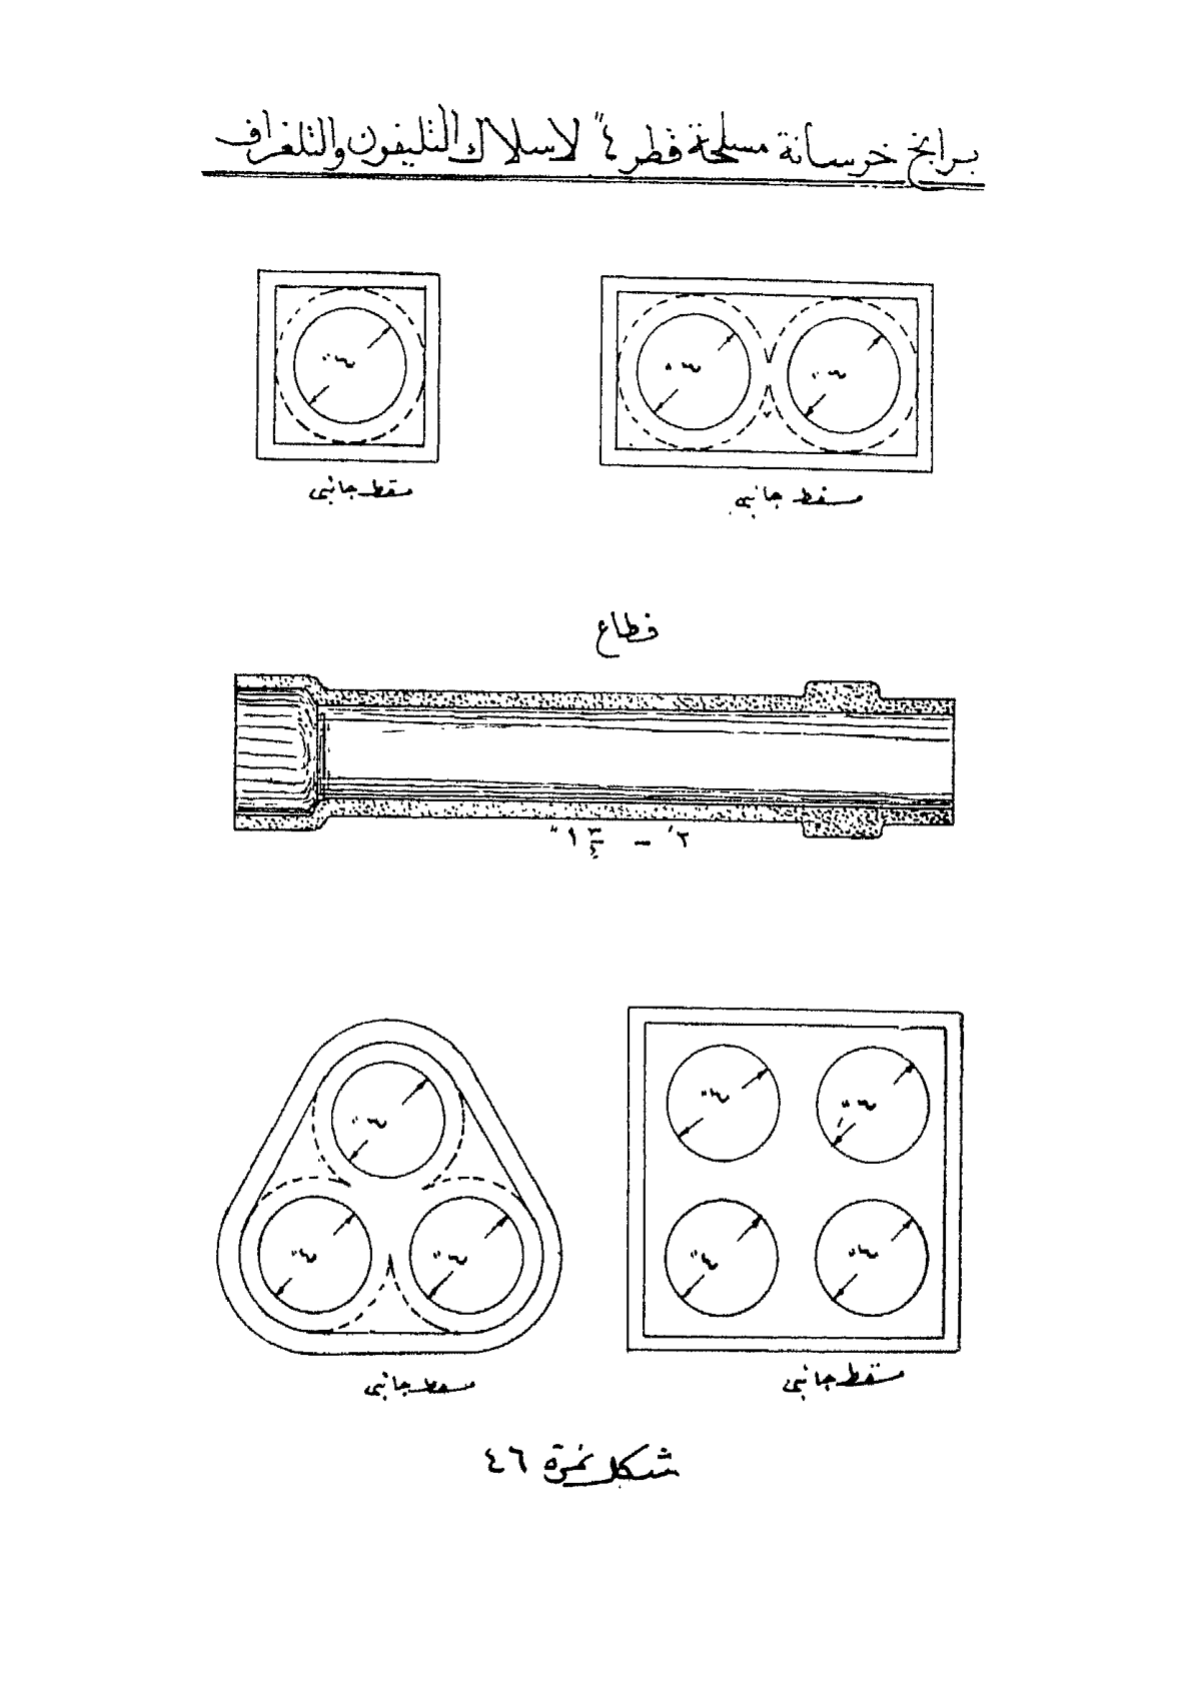 برابخ خرسانة مسلحة قطر ٤" لاسلاك التليفون والتلغراف
مسقط جانبى
مسقط جانبى
قطاع
٢' - ١ ٣/٤"
مسقط جانبى
مسقط جانبى
شكل نمرة ٤٦